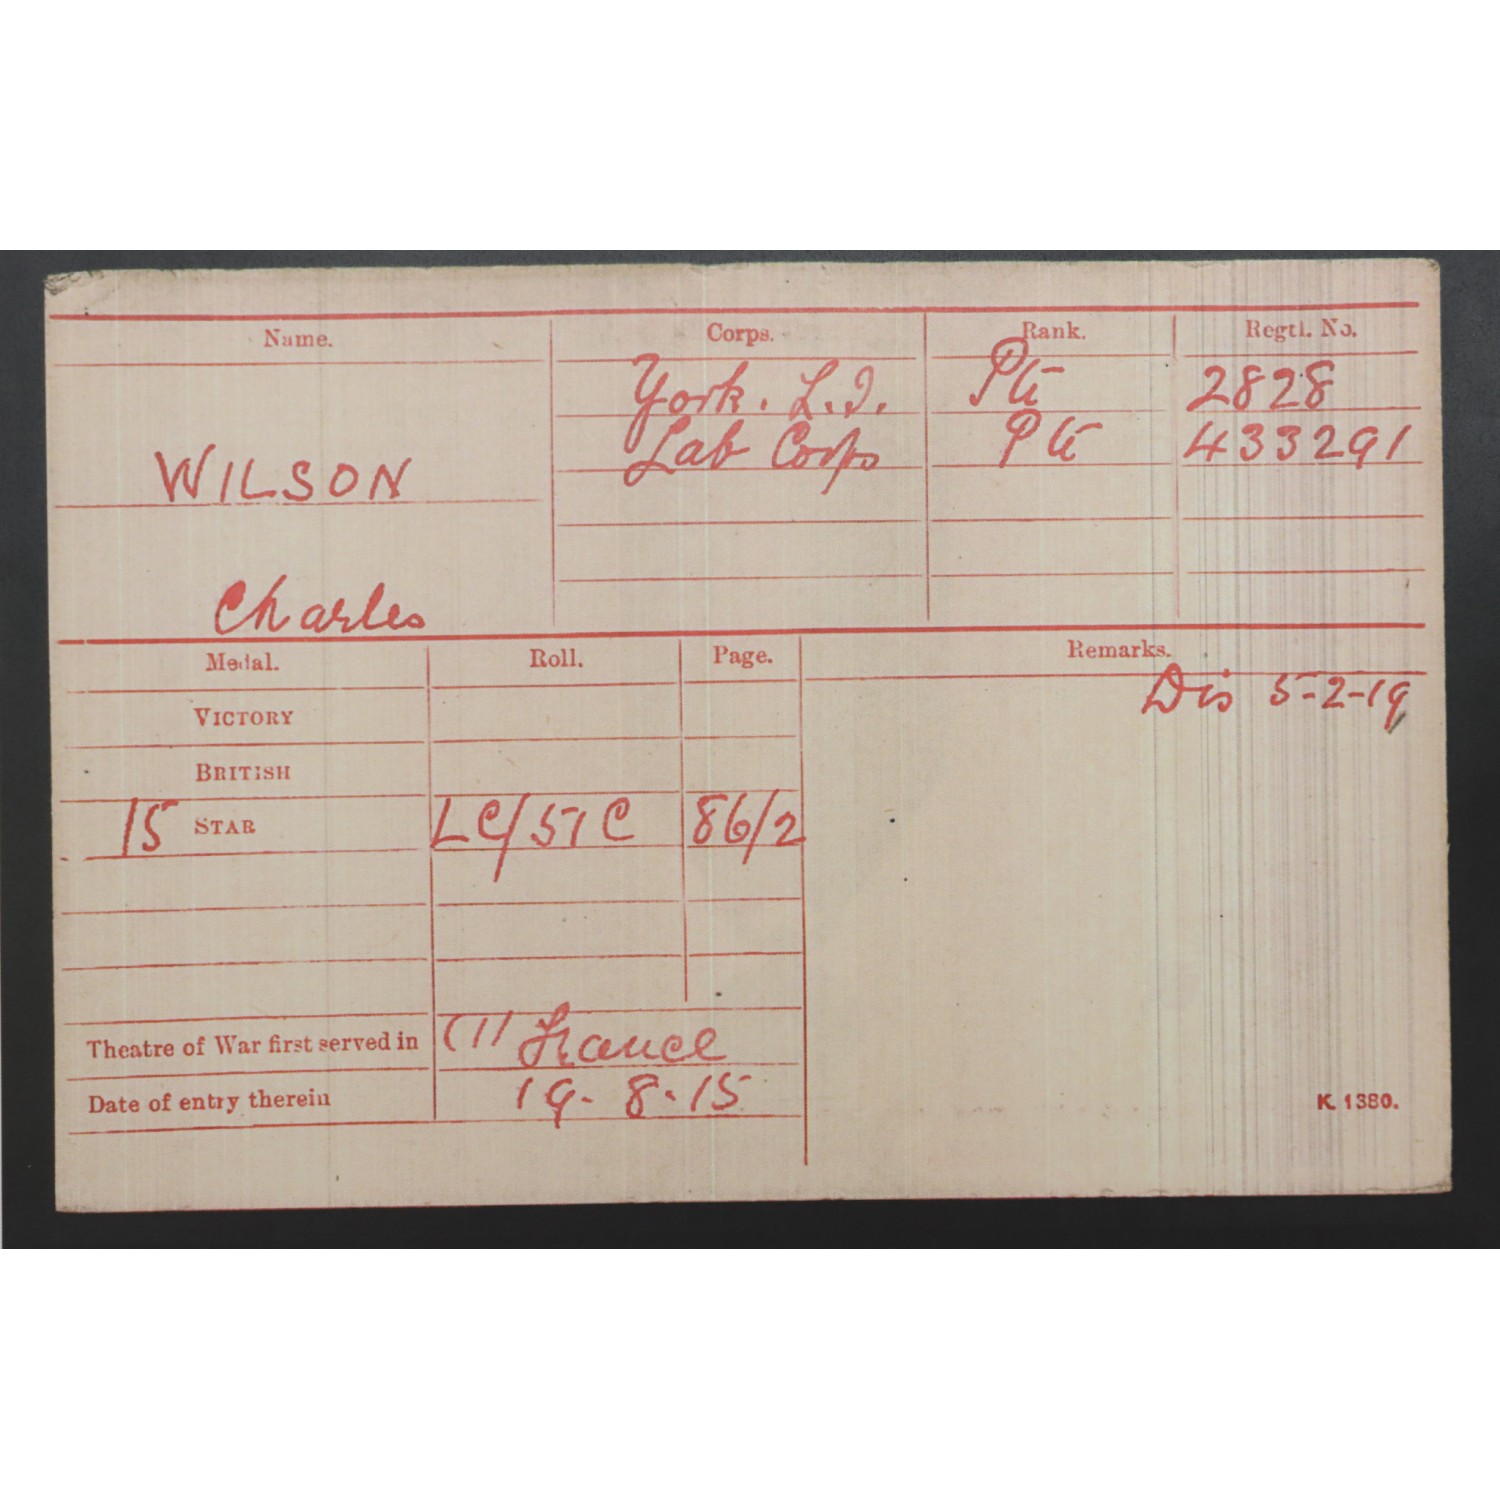 Name. Corps. Rank. Regtl. No.
York. L.I. Pte 2828
Lab Corps Pte 433291
WILSON
Charles
Medal. Roll. Page. Remarks.
Dis 5-2-19
VICTORY
BRITISH
15 STAR LC/51C 86/2
Theatre of War first served in (1) France
Date of entry therein 19-8-15
K 1380.